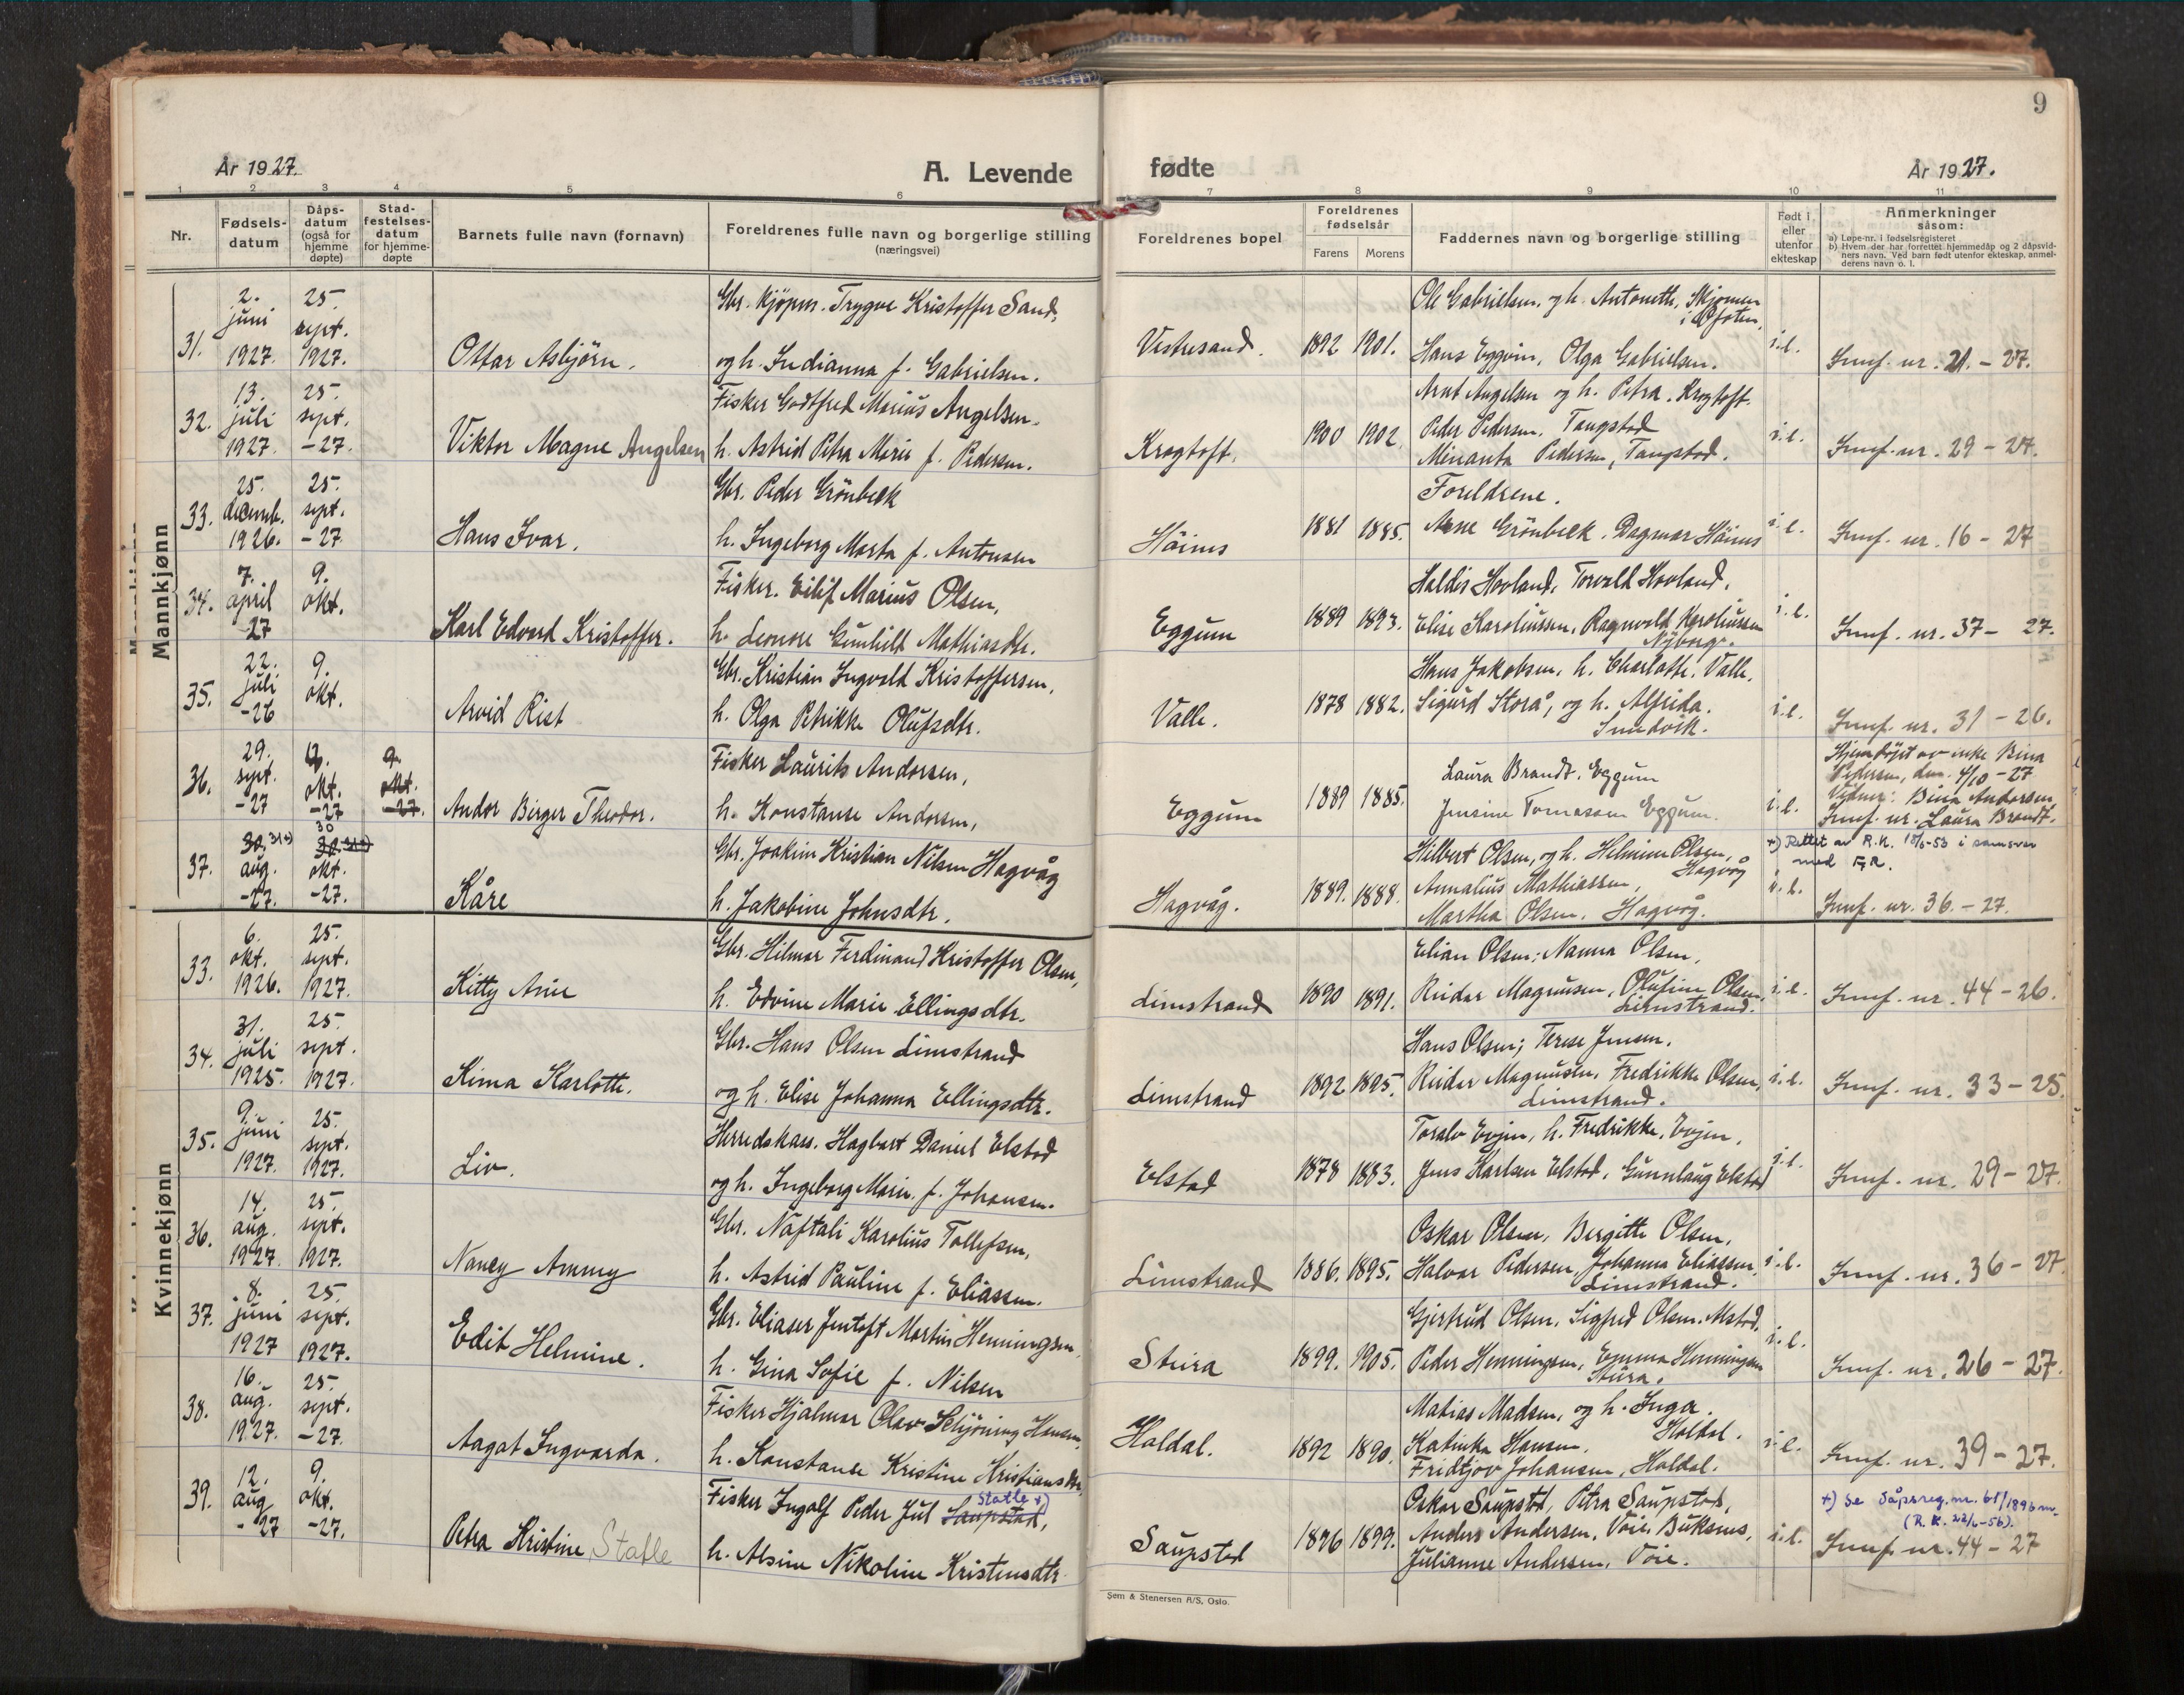 9
År 1927.
A. Levende
fødte
År 1927.
1 2 3 4 5 6 7 8 9 10 11
Nr.
Fødsels-
datum
Dåps-
datum
(også for
hjemme
døpte)
Stad-
festelses-
datum
for hjemme-
døpte
Barnets fulle navn (fornavn)
Foreldrenes fulle navn og borgerlige stilling
(næringsvei)
Foreldrenes bopel
Foreldrenes
fødselsår
Farens Morens
Faddernes navn og borgerlige stilling
Født i
eller
utenfor
ekteskap
Anmerkninger
såsom:
a) Løpe-nr. i fødselsregisteret
b) Hvem der har forrettet hjemmedåp og 2 dåpsvid-
ners navn. Ved barn født utenfor ekteskap, anmel-
derens navn o. l.
Mannkjønn
31.
2.
juni
1927.
25.
sept.
1927.
Ottar Asbjörn.
Gbr. Kjöpm. Trygve Kristoffer Sand,
og h. Indianna f. Gabrielsen.
Vestresand. 1892 1901.
Ole Gabrielsen, og h. Antonette, Skjomen
i Ofoten.
Hans Eggum, Olga Gabrielsen.
i.e.
Innf. nr. 21. - 27.
32.
13.
juli
1927.
25.
sept.
-27.
Viktor Magne Angelsen
Fisker Godtfred Marius Angelsen.
h. Astrid Petra Marie f. Pedersen.
Krogtoft. 1900 1902.
Arnt Angelsen og h. Petra. Krogtoft.
Peder Pedersen. Tangstad
Minanta Pedersen, Tangstad.
i.e.
Innf. nr. 29 - 27.
33.
25.
decemb.
1926.
25.
sept.
-27.
Hans Ivar.
Gbr. Peder Grönbeck
h. Ingeborg Marta f. Antonsen
Höines 1881 1885.
Foreldrene.
Arne Grönbeck. Dagmar Höines
i.e.
Innf. nr. 16 - 27
34.
7.
april
27
9.
okt.
Karl Edvard Kristoffer.
Fisker. Eilif Marius Olsen,
h. Leonore Gunhild Mathiasdtr.
Eggum 1889 1893.
Haldis Hovland, Torvald Hovland,
Elise Karoliussen, Ragnvald Karoliussen
Nyborg.
i.e.
Innf. nr. 37 - 27.
35.
22.
juli
-26
9.
okt.
Arvid Rist
Gbr. Kristian Ingvald Kristoffersen,
h. Olga Petrikke Olufsdtr.
Valle. 1878 1882.
Hans Jakobsen, h. Charlotte. Valle.
Sigurd Storå, og h. Alfrida.
Sundvik.
i.e.
Innf. nr. 31 - 26.
36.
29.
sept.
-27
okt.
-27
9.
okt.
-27.
Andor Birger Theodor.
Fisker Laurits Andorsen,
h. Konstanse Andorsen,
Eggum 1889 1885.
Laura Brandt, Eggum
Jensine Tomassen Eggum.
i.e.
Hjemdöpt av enke Bina
Pedersen, den 4/10 - 27
Vidner: Bina Andorsen,
Innf. nr. Laura Brandt.
37.
30. 31+)
aug.
-27.
30
30. 31+)
okt.
-27.
Kåre
Gbr. Joakim Kristian Nilsen Hagvåg
h. Jakobine Johnsdtr.
Hagvåg. 1889. 1888.
Hilbert Olsen, og h. Helmine Olsen,
Hagvåg
Annalius Mathiassen,
Martha Olsen, Hagvåg.
i.e.
+) Rettet av R.K. 18/6-53 i samsvar
med F.R.
Innf. nr. 36. - 27.
Kvinnekjønn
33.
6.
okt.
1926.
25.
sept.
1927.
Kitty Arie
Gbr. Hilmar Ferdinand Kristoffer Olsen,
h. Edvine Marie Ellingsdtr.
Limstrand 1890 1891.
Elian Olsen; Nanna Olsen,
Reidar Magnussen, Olufine Olsen,
Limstrand.
i.e.
Innf. nr. 44 - 26.
34.
31.
juli
1925.
25.
sept.
1927.
Kima Karlotte.
Gbr. Hans Olsen Limstrand
og h. Elise Johanna Ellingsdtr.
Limstrand 1892 1895.
Hans Olsen; Terese Jensen.
Reidar Magnussen, Fredrikke Olsen,
Limstrand.
i.e.
Innf. nr. 33 - 25.
35.
9.
juni
1927.
25.
sept.
1927.
Liv.
Herredskass. Hagbart Daniel Elstad
og h. Ingeborg Marie, f. Johansen.
Elstad 1878 1883.
Toralv Evjen, h. Fredrikke, Evjen,
Jens Karlsen Elstad, Gunnlaug Elstad
i.e.
Innf. nr. 29 - 27.
36.
14.
aug.
1927.
25.
sept.
1927.
Nancy Ammy
Gbr. Naftali Karolius Tollefsen,
h. Astrid Pauline f. Eliassen.
Limstrand 1886. 1895.
Oskar Olsen, Bergitte Olsen,
Halvar Pedersen, Johanna Eliassen,
Limstrand.
i.e.
Innf. nr. 36 - 27.
37.
8.
juni
1927
25.
sept.
1927.
Edit Helmine.
Gbr. Eliaser Jentoft Martin Henningsen,
h. Gina Sofie f. Nilsen
Steira 1899. 1905.
Gjertrud Olsen, Sigfred Olsen. Mstad.
Peder Henningsen, Emma Henningsen
Steira.
i.e.
Innf. nr. 26 - 27.
38.
16.
aug.
1927.
25.
sept.
-27.
Aagat Ingvarda.
Fisker Hjalmar Olav Schjöning Hansen,
h. Konstanse Kristine Kristiansdtr.
Haldal. 1892 1890.
Matias Madsen, og h. Inga.
Haldal.
Katinka Hansen,
Fridtjov Johansen, Haldal.
i.e.
Innf. nr. 39 - 27.
39.
12.
aug
-27
9.
okt.
-27.
Petra Kristine Statle
Statle +)
Fisker Ingolf Peder Jul Saupstad,
h. Alsine Nikoline Kristensdtr.
Saupstad 1896 1899.
Oskar Saupstad, Petra Saupstad,
Anders Andersen, Voie, Buksnes,
Julianne Andersen, Voie.
i.e.
+) Se dåpsreg. nr. 61/1896 m.
(R.K. 22/6-56).
Innf. nr. 44 - 27
Sem & Stenersen A/S, Oslo.